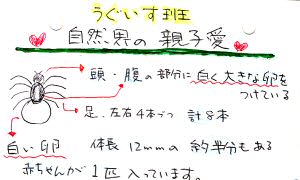 うぐいす班
自然界の親子愛
頭・腹の部分に白く大きな卵を
つけている
足、左右4本づつ 計8本
白い卵 体長12mmの約半分もある
赤ちゃんが1匹入っています。